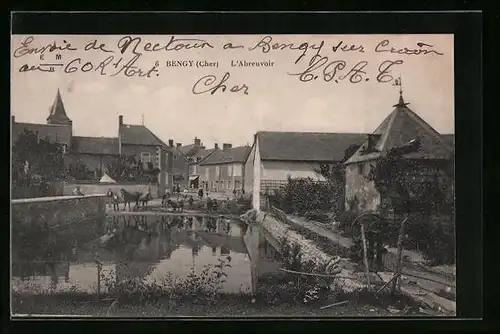 Envoie de Nectoux a Bengy sur Craon
au 60 R'd Art.
Cher C. P. A. T.
E M
B
6 BENGY (Cher) L'Abreuvoir